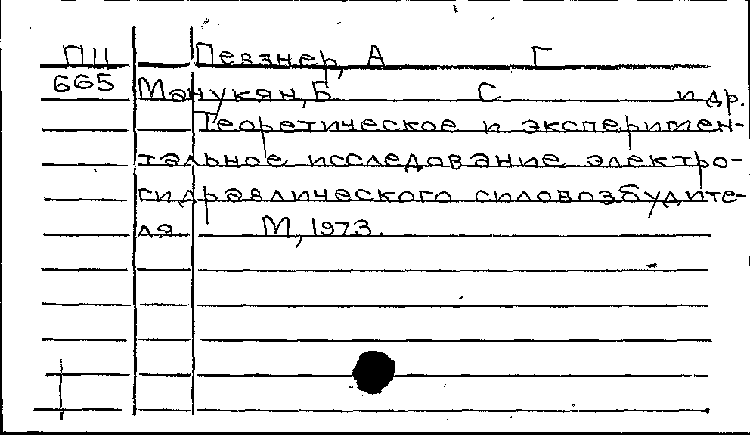 ПП Певзнер, А Г
665 Манукян, Б С и др.
Теоретическое и эксперимен-
тальное исследование электро-
гидравлического силовозбудите-
ля М, 1973.